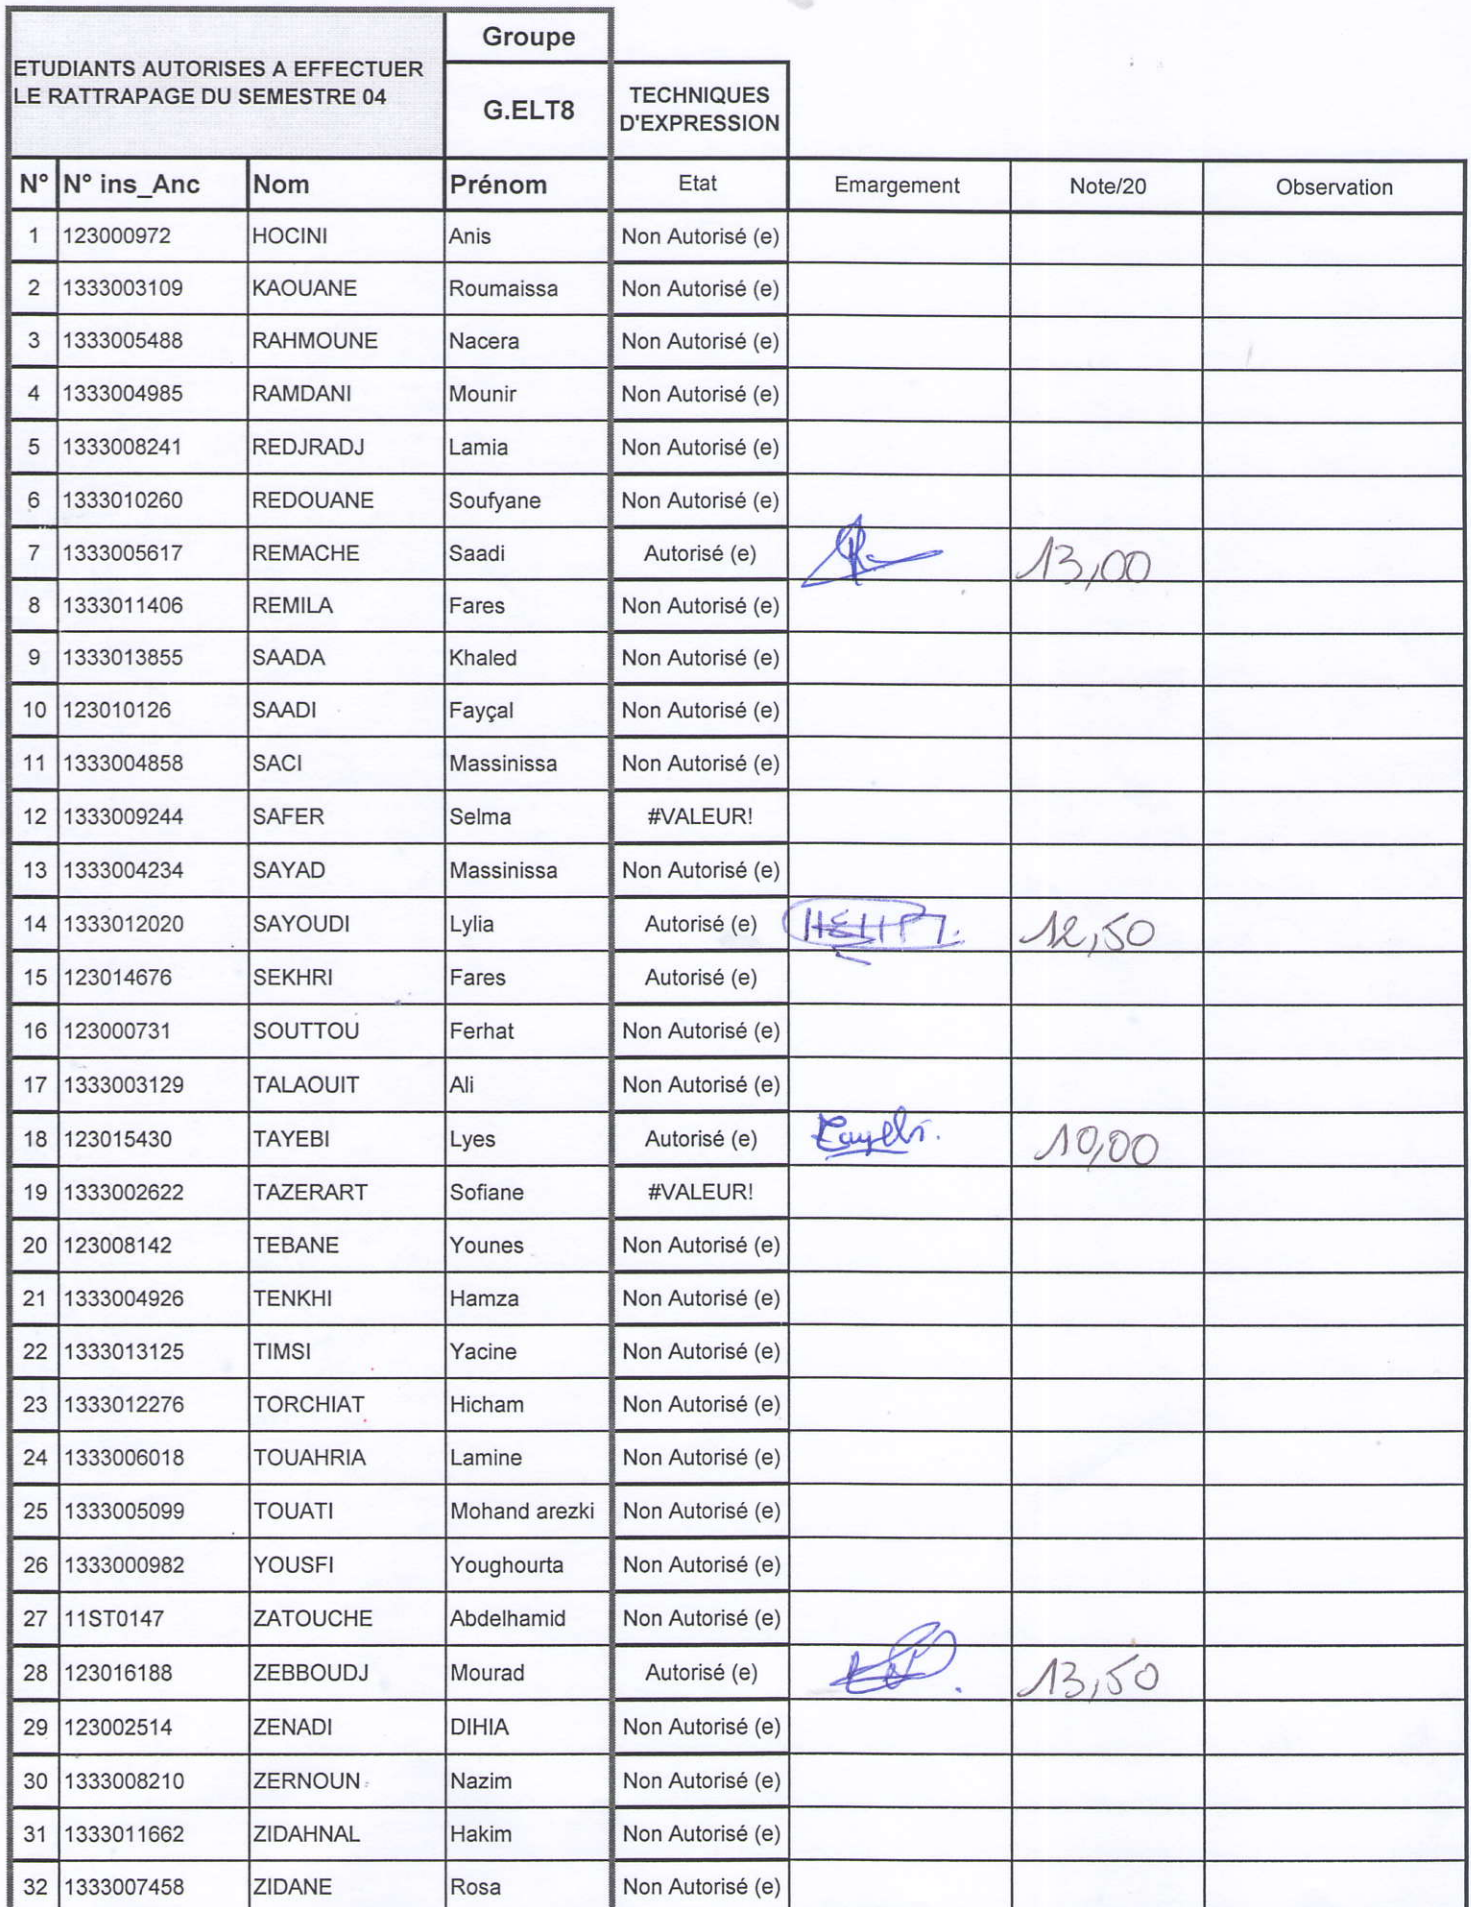 Groupe
ETUDIANTS AUTORISES A EFFECTUER
LE RATTRAPAGE DU SEMESTRE 04
G.ELT8
TECHNIQUES
D'EXPRESSION
N° N° ins_Anc Nom Prénom Etat Emargement Note/20 Observation
1 123000972 HOCINI Anis Non Autorisé (e)
2 1333003109 KAOUANE Roumaissa Non Autorisé (e)
3 1333005488 RAHMOUNE Nacera Non Autorisé (e)
4 1333004985 RAMDANI Mounir Non Autorisé (e)
5 1333008241 REDJRADJ Lamia Non Autorisé (e)
6 1333010260 REDOUANE Soufyane Non Autorisé (e)
7 1333005617 REMACHE Saadi Autorisé (e) 13,00
8 1333011406 REMILA Fares Non Autorisé (e)
9 1333013855 SAADA Khaled Non Autorisé (e)
10 123010126 SAADI Fayçal Non Autorisé (e)
11 1333004858 SACI Massinissa Non Autorisé (e)
12 1333009244 SAFER Selma #VALEUR!
13 1333004234 SAYAD Massinissa Non Autorisé (e)
14 1333012020 SAYOUDI Lylia Autorisé (e) 12,50
15 123014676 SEKHRI Fares Autorisé (e)
16 123000731 SOUTTOU Ferhat Non Autorisé (e)
17 1333003129 TALAOUIT Ali Non Autorisé (e)
18 123015430 TAYEBI Lyes Autorisé (e) Tayebi. 10,00
19 1333002622 TAZERART Sofiane #VALEUR!
20 123008142 TEBANE Younes Non Autorisé (e)
21 1333004926 TENKHI Hamza Non Autorisé (e)
22 1333013125 TIMSI Yacine Non Autorisé (e)
23 1333012276 TORCHIAT Hicham Non Autorisé (e)
24 1333006018 TOUAHRIA Lamine Non Autorisé (e)
25 1333005099 TOUATI Mohand arezki Non Autorisé (e)
26 1333000982 YOUSFI Youghourta Non Autorisé (e)
27 11ST0147 ZATOUCHE Abdelhamid Non Autorisé (e)
28 123016188 ZEBBOUDJ Mourad Autorisé (e) 13,50
29 123002514 ZENADI DIHIA Non Autorisé (e)
30 1333008210 ZERNOUN Nazim Non Autorisé (e)
31 1333011662 ZIDAHNAL Hakim Non Autorisé (e)
32 1333007458 ZIDANE Rosa Non Autorisé (e)